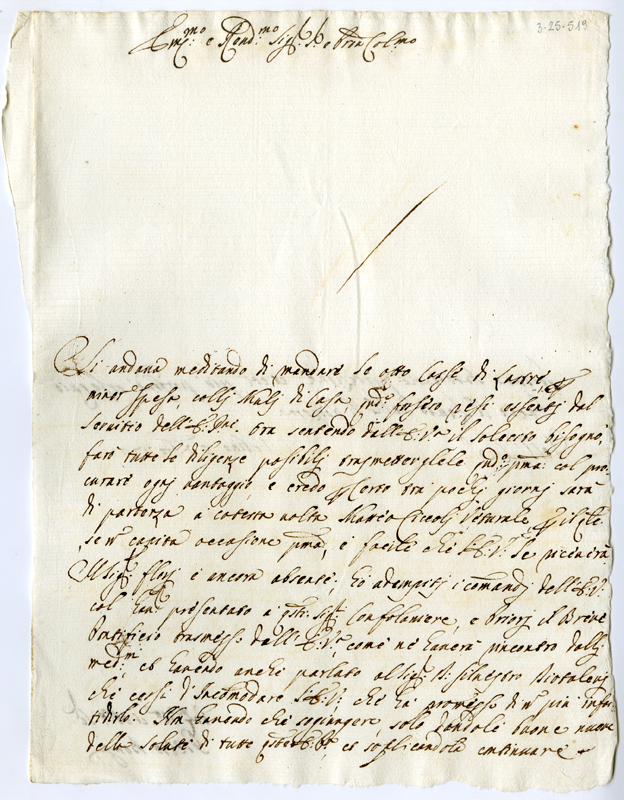 3-25-519
Em:mo e Rend:mo Sig:r e Pron Col:mo
Si andaua meditando di mandare le otto Casse di
minor spesa, colli Muli di Casa q:do fussero resi essentj dal
seruitio dell'E: Ora sentendo dall'E:V:ra il solecito bisogno,
farò tutte le diligenze possibilj trasmetterglele q:do p:ma: col pro
curare ognj vantaggio, e credo Certo tra pochj giornj sarà
di partenza a cotesta uolta Mario Vetturale,
se n:n capita occasione p:ma, è facile che l'E:V: le riceuerà
Il Sig:r è ancora absente; hò adempitj i comandj dell'E:V:
col hauer presentato a q:sti Sig:ri Confaloniere, e Priorj il Breue
Pontificio trasmesso dall'E:V:ra come ne hauerà rincontro dallj
med:mi, et hauendo anche parlato al Sig:r Siluestro
che cessi di incomodare l'E:V: che hà promesso di n:n più infas
tidirlo. Non hauendo che soggiungere, solo dandole buone nuoue
della salute di tutte et suplicandola continuare